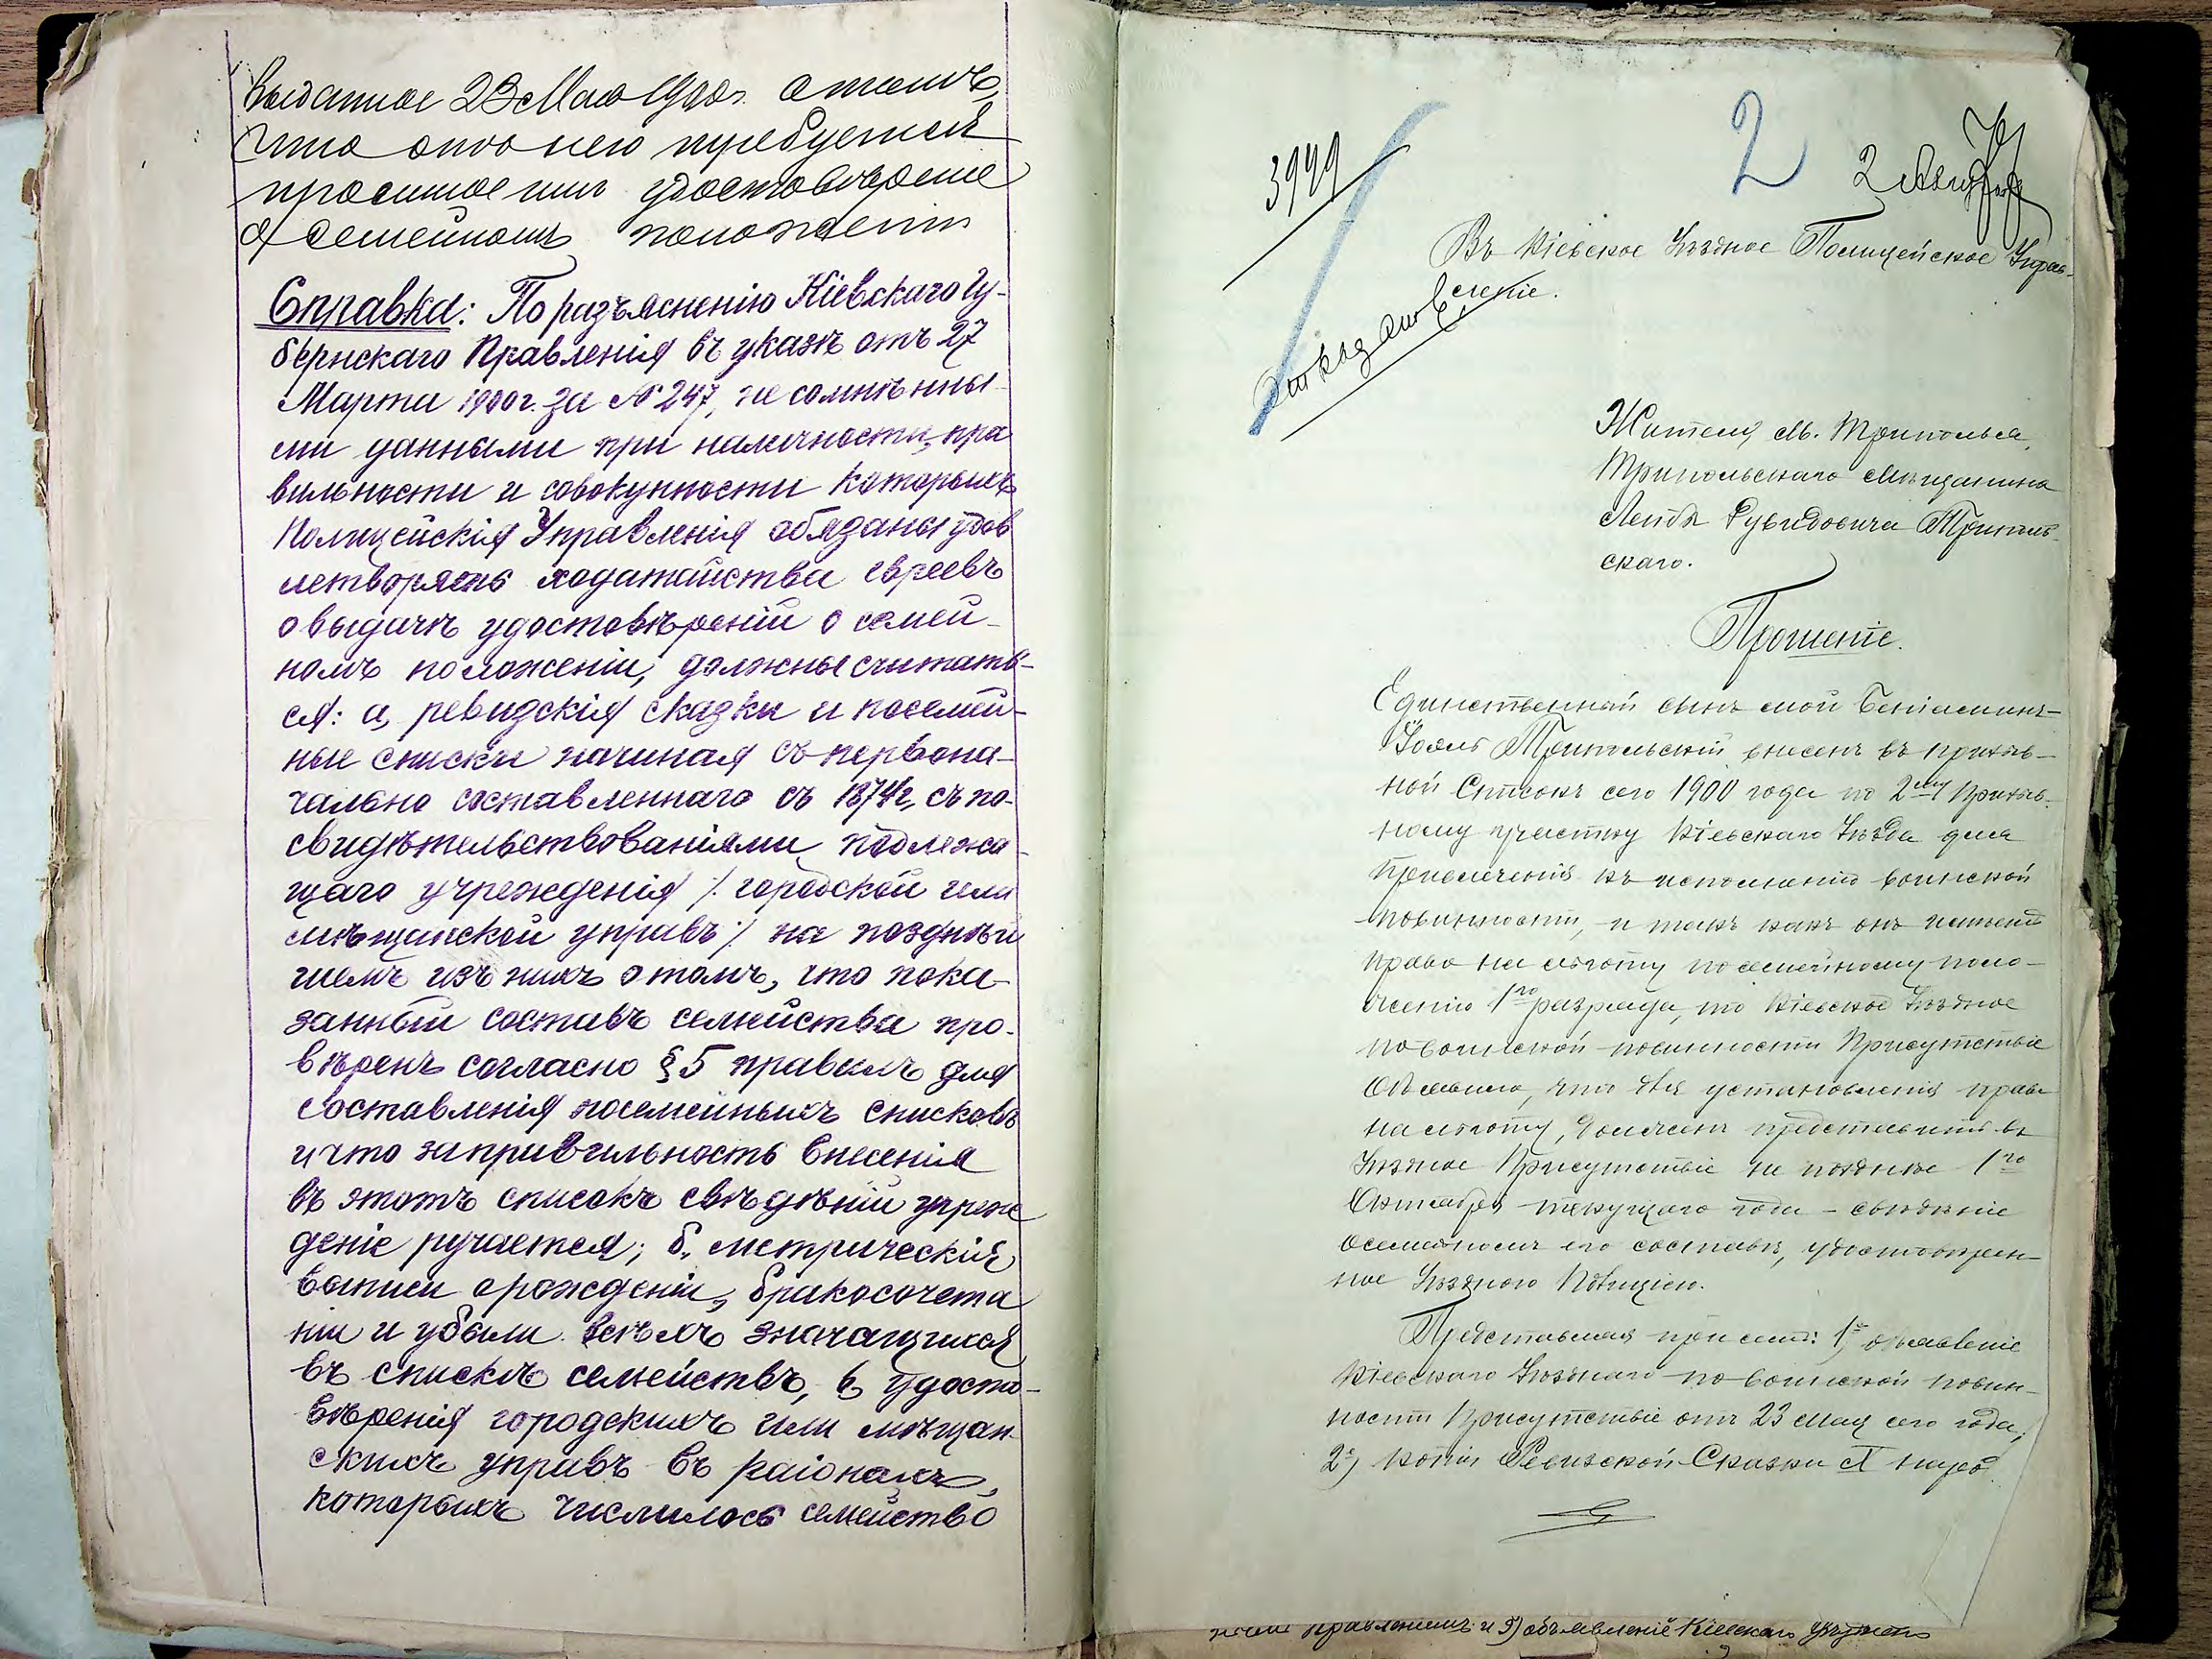 выданное 23 Мая 1900 г. о томъ,
что отъ него требуется
просимое имъ удостовѣреніе
о семейномъ положеніи
Справка: По разъясненію Кіевскаго Гу-
бернскаго Правленія въ указѣ отъ 27
Марта 1900 г. за № 247, не сомнѣнны-
ми данными при наличности, пра
вильности и совокупности которыхъ
Полицейскія Управленія обязаны удов
летворять ходатайства евреевъ
о выдачѣ удостовѣреній о семей-
номъ положеніи, должны считать-
ся: а, ревизскія сказки и посемей-
ные списки начиная съ первона-
чально составленнаго съ 1874 г, съ по-
свидѣтельствованіями подлежа-
щаго учрежденія /. городской или
мѣщанской управъ ./ на позднѣй
шемъ изъ нихъ о томъ, что пока-
занный составъ семейства про-
вѣренъ согласно § 5 правилъ для
составленія посемейныхъ списковъ
и что за правильность внесенія
въ этотъ списокъ свѣдѣній учреж
деніе ручается; б, метрическія
выписи о рожденіи, бракосочета
ніи и убыли всѣхъ значащихся
въ спискѣ семействъ, в, удосто-
вѣренія городскихъ или мѣщан-
скихъ управъ въ раіонахъ,
которыхъ числилось семейство
3949
2
2
Въ Кіевское Уѣздное Полицейское Управ-
леніе.
Жителя м. Триполья,
Трипольскаго мѣщанина
Лейбы Рувидовича Триполь-
скаго.
Прошеніе.
Единственный сынъ мой Беніаминъ-
Трипольскій внесенъ въ призыв-
ной Списокъ сего 1900 года по 2му Призыв-
ному участку Кіевскаго Уѣзда для
привлеченія къ исполненію воинской
повинности, и такъ какъ онъ имѣетъ
право на льготу по семейному поло-
женію 1го разряда, то Кіевское Уѣздное
по воинской повинности Присутствіе
объявило, что для установленія права
на льготу, долженъ представить въ
Уѣздное Присутствіе не позднѣе 1го
Октября текущаго года - свѣдѣніе
о семейномъ его составѣ, удостовѣрен-
ное Уѣздною Полиціею.
Представляя при семъ: 1) объявленіе
Кіевскаго Уѣзднаго по воинской повин-
ности Присутствіе отъ 23 мая сего года,
2) копія Ревизской Сказки
Правленіемъ и 5) объявленіе Кіевскаго